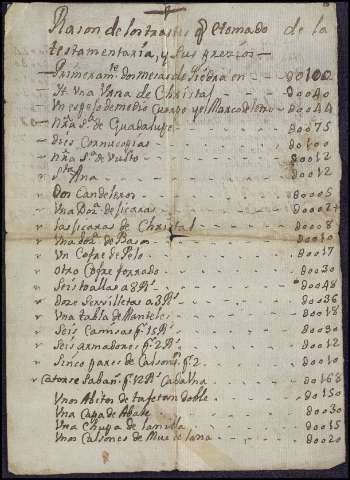 Rason de los trastes q̃ e tomado de la
testamentaria, y sus presios —
— Primeramte. dos mesas de Piedra en — — 80100
— It. Vna Vrna de Christal — — — 80040
— Vn espejo de medio Cuerpo y el Marco de — 80044
— Nrã Sa. de Guadalupe — — — 80075
— Dies Cornucopias — — — 80100
— Nrã Sa. de Vulto — — — 80012
— Sta. Ana — — — 80012
— Dos Candeleros — — — 80005
— Vna Doza. de sicaras — — — 8002
— las sicaras de Christal — — — 80008
— Vna doza. de — — — 80010
— Vn Cofre de Pelo — — — 80017
— Otro Cofre forrado — — — 80030
— Seis toallas a 8 Rs. — — — 80048
— Doze Servilletas a 3 Rs. — — — 80036
— Vna tabla de Manteles — — — 80018
— Seis Camisas ps. 15 Rs. — — — 80090
— Seis armadores ps. 2 Rs. — — — 80012
— Sinco pares de Calsons. ps. 2 — — — 80010
— Catorse Saban. ps. 12 Rs. Cada Vna — — — 80168
Vnos Abitos de tafetan doble — — — 80150
Vna Capa de Abate — — — 80030
Vna Chupa de lanilla — — — 80015
Vnos Calsones de Mue de lana — — — 80020